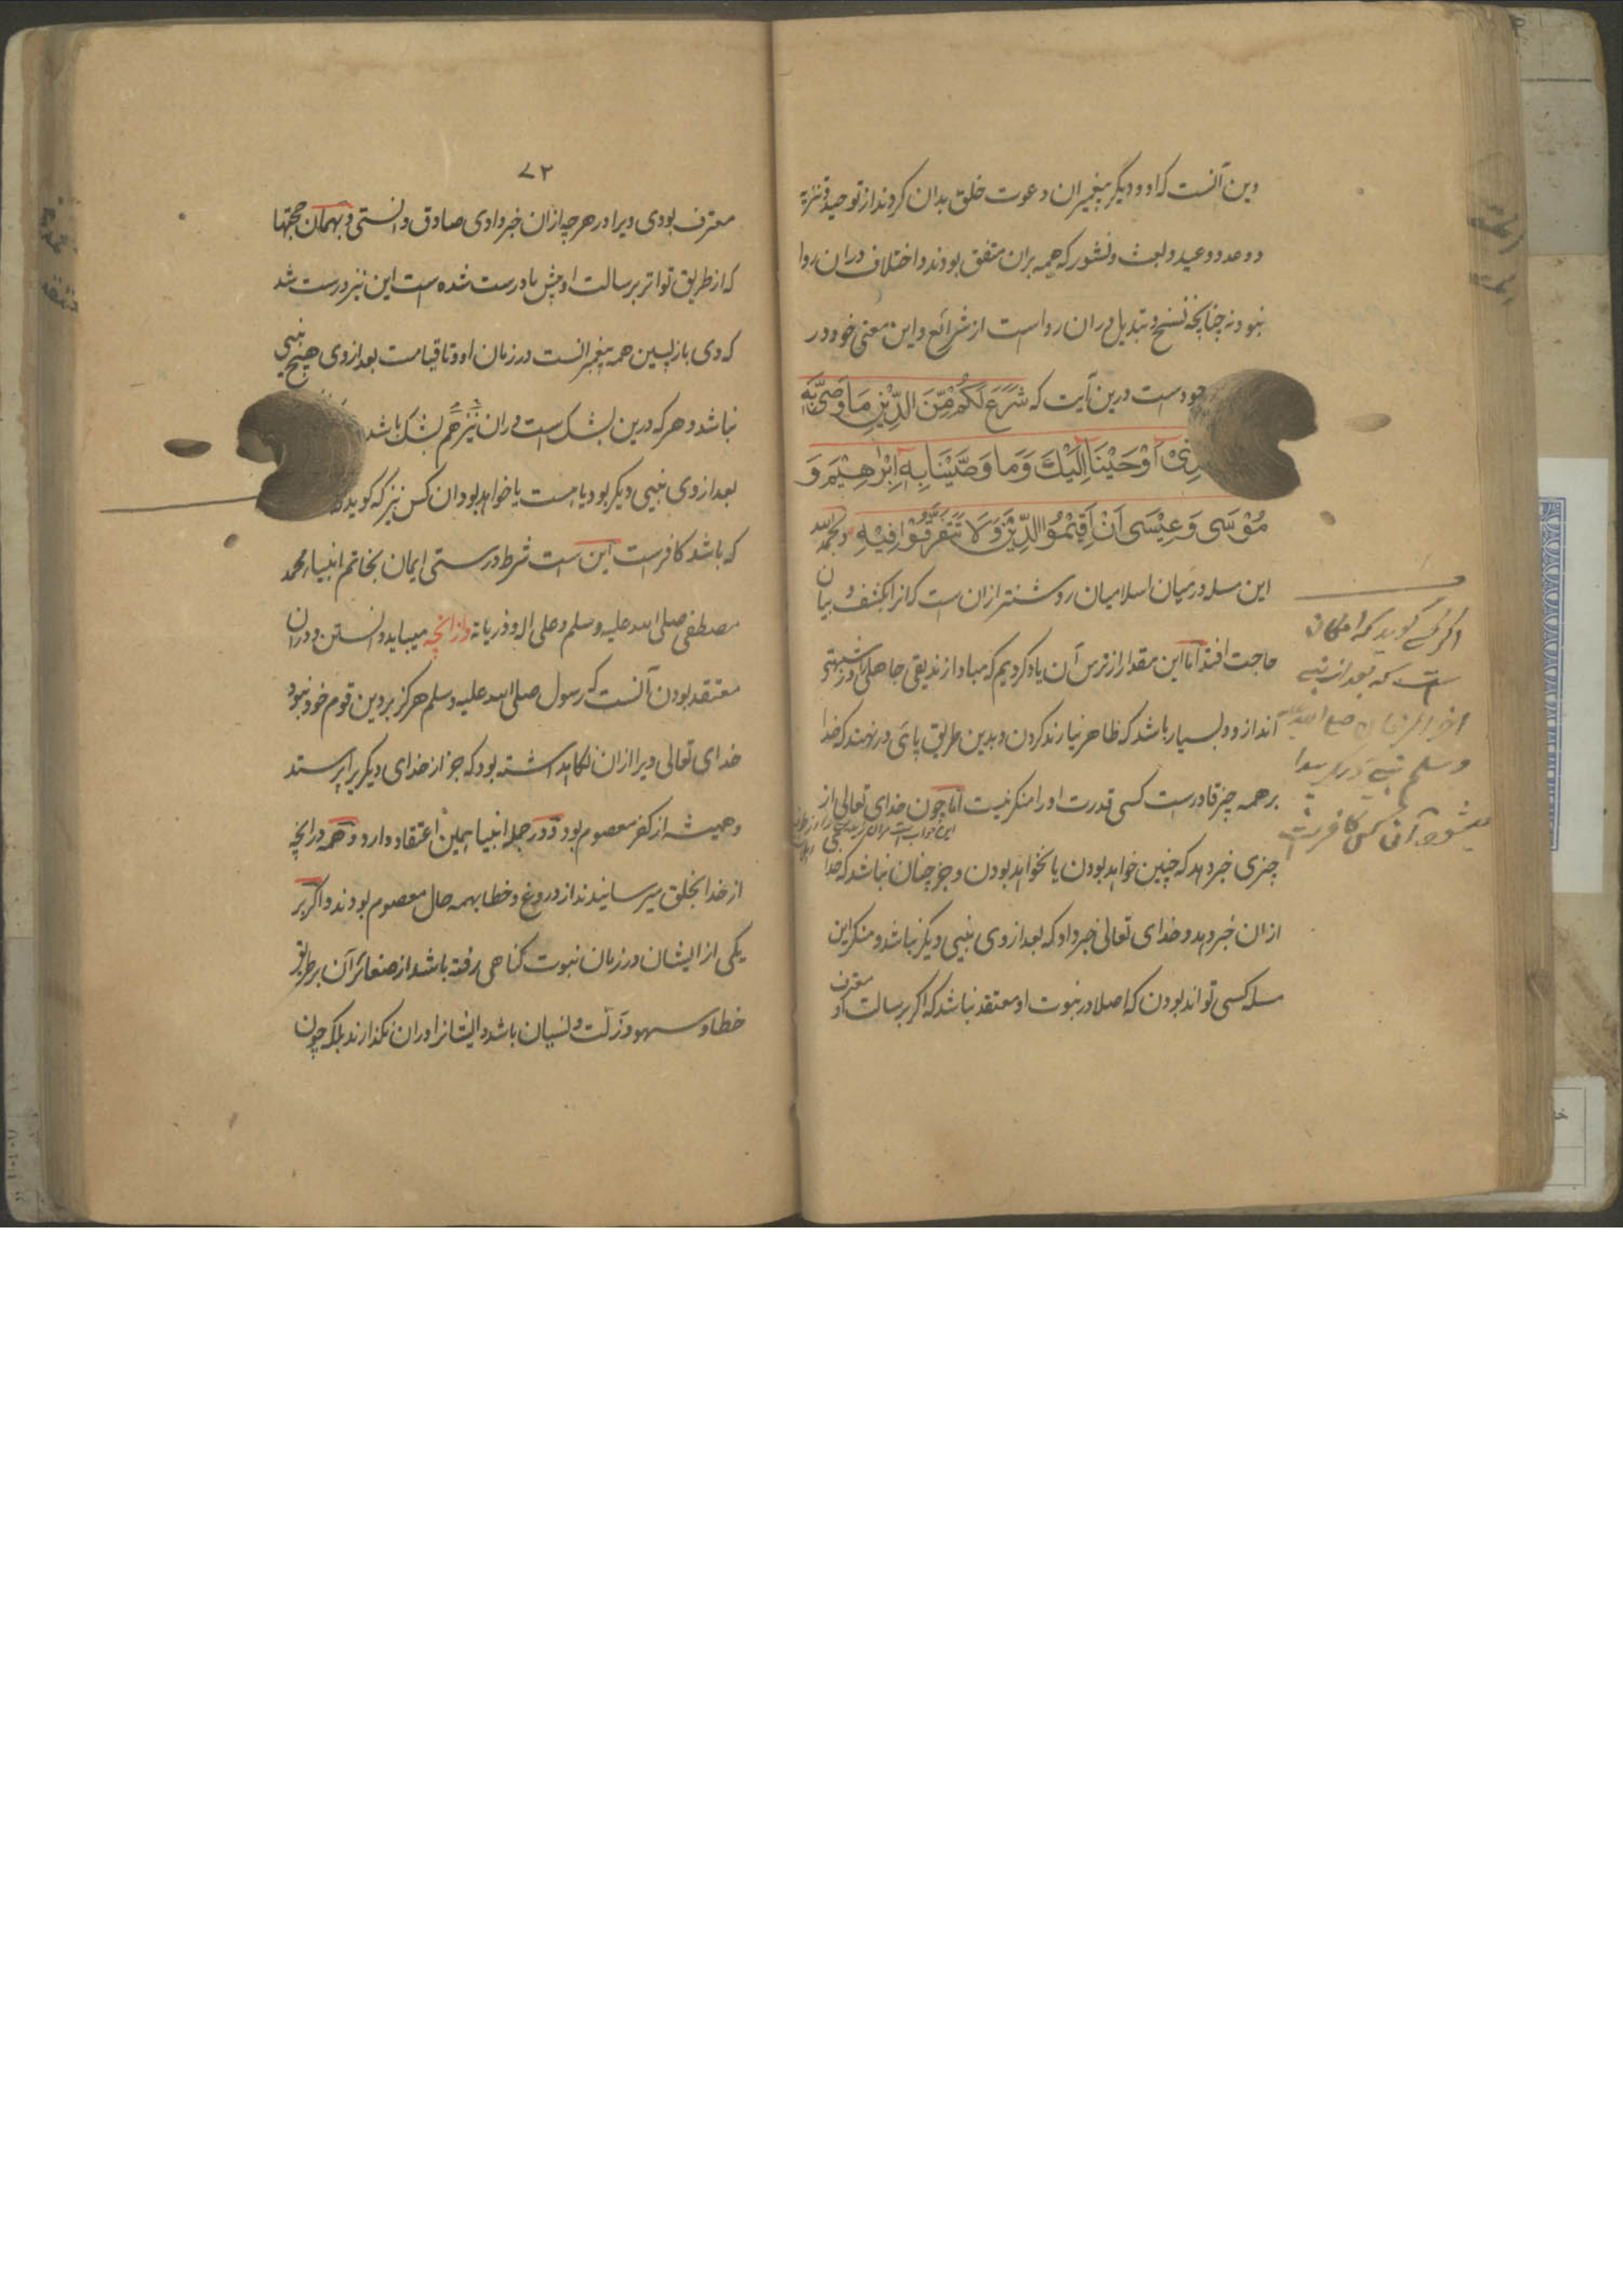 دین آنست که او و دیگر پیغمبران دعوت خلق بدان کردند از توحید و تنزیه
و وعد و وعید و بعث و نشور که همه بران متفق بودند و اختلاف دران روا
نبود نه چنانچه نسخ و تبدیل دران رواست از شرائع و این معنی خود در
درین آیت که شَرَعَ لَكُمْ مِّنَ الدِّيْنِ مَا وَصّٰى بِهٖ
اَوْحَيْنَا اِلَيْكَ وَمَا وَصَّيْنَا بِهٖ اِبْرٰهِيْمَ وَ
مُوْسٰى وَعِيْسٰى اَنْ اَقِيْمُوا الدِّيْنَ وَلَا تَتَفَرَّقُوْا فِيْهِ و بحمد الله
این مسله درمیان اسلامیان روشنتر ازان ست که انرا بکشف و بیان
حاجت افتد اما این مقدار از ترس آن یاد کردیم که مبادا زندیقی جاهلی را در شبهتی
اندازد و بسیار باشد که ظاهر نیارند کردن و بدین طریق پای در نهند که خدا
بر همه چیز قادرست کسی قدرت او را منکر نیست اما چون خدای تعالی از
چیزی خبر دهد که چنین خواهد بودن یا نخواهد بودن و جز چنان نباشد که خدا
ازان خبر دهد و خدای تعالی خبر داد که بعد از وی نبیی دیگر نباشد و منکر این
مسله کسی تواند بودن که اصلا در نبوت او معتقد نباشد که اگر برسالت او معترف
اگر کسے گوید که امکان
ست که بعد از نبی
اخر الزمان صلی الله علیه
وسلم نبے دیگر پیدا
میشود آن کس کافر ست
۷۲
معترف بودی ویرا در هرچه ازان خبر دادی صادق دانستی و بهمان حجتها
که از طریق تواتر برسالت او پیش ما درست شده ست این نیز درست شد
که وی بازپسین همه پیغمبرانست در زمان او و تا قیامت بعد از وی هیچ نبیی
نباشد و هر که درین بشک ست دران نیز هم بشک باشد
بعد از وی نبیی دیگر بود یا هست یا خواهد بود و ان کس نیز که گوید که
که باشد کافرست این ست شرط درستی ایمان بخاتم انبیاء محمد
مصطفی صلی الله علیه وسلم و علی اله و ذریاته و ازانچه میباید دانستن و دران
معتقد بودن آنست که رسول صلی الله علیه وسلم هرگز بر دین قوم خود نبود
خدای تعالی ویرا ازان نگاهداشته بود که جز از خدای دیگر یرا پرستد
و همیشه از کفر معصوم بود و در جمله انبیا همین اعتقاد دارد و همه درانچه
از خدا بخلق میرسانیدند از دروغ و خطا بهمه حال معصوم بودند و اگر بر
یکی از ایشان در زمان نبوت گناهی رفته باشد از صغائر آن بر طریق
خطا و سهو و زلت و نسیان باشد و ایشانرا دران نگذارند بلکه چون